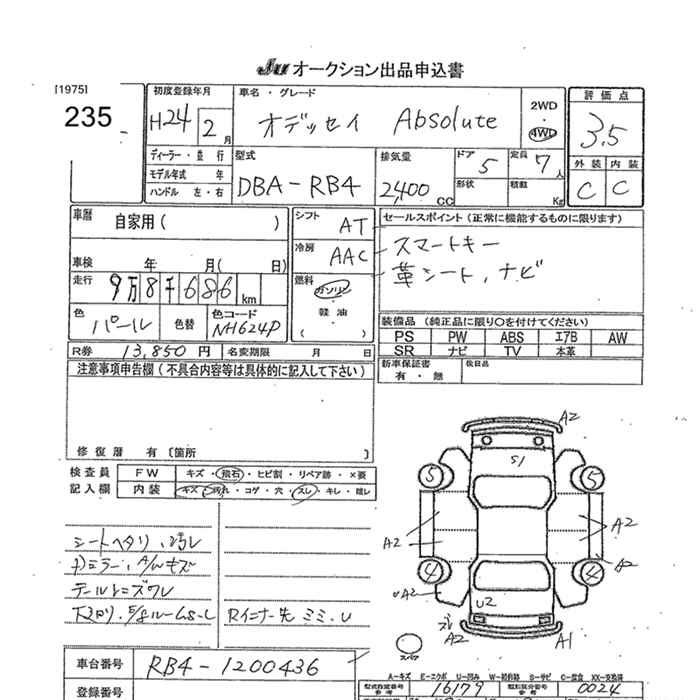 JU オークション出品申込書
[1975]
235
初度登録年月
H24 2 月
車名・グレード
オデッセイ Absolute
2WD
4WD
評価点
3.5
外装 内装
C C
ディーラー・並行
モデル年式 年
ハンドル 左・右
型式
DBA-RB4
排気量
2,400 CC
ドア 5
形状
定員 7 人
積載 Kg
車歴 自家用 ( )
車検 年 月( 日)
走行 9万8千686 km
色 パール 色替 色コード NH624P
シフト AT
冷房 AAC
燃料 ガソリン
・
軽油
・
( )
セールスポイント (正常に機能するものに限ります)
スマートキー
革シート、ナビ
装備品 (純正品に限り○を付けてください)
PS PW ABS エアB AW
SR ナビ TV 本革
新車保証書
有・無
後日品
R券 13,850 円 名変期限 月 日
注意事項申告欄 (不具合内容等は具体的に記入して下さい)
修復歴 有 [箇所 ]
検査員 FW キズ・飛石・ヒビ割・リペア跡・×要
記入欄 内装 キズ・汚れ・コゲ・穴・スレ・キレ・膿レ
シートヘタリ、汚レ
ドミラー、A/Wキズ
テールレンズワレ
Rイニナー先ミミ.U
A2
S1
5 5
A2 A2
A2
4 4
A2
U2
A2 A1
スペア
A-キズ E-エクボ U-凹み W-波釣板 S-サビ C-腐食 XX-交換済
車台番号 RB4-1200436
登録番号
型式指定番号 16179 類別区分番号 0024